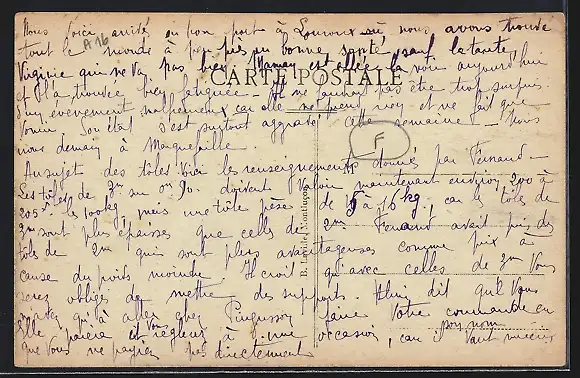 Nous voici arrivé au bon port à Louroux où nous avons trouvé
tout le monde à peu près en bonne santé, sauf la tante
A 16
Virginie qui ne va pas bien Maman est allée la voir aujourd'hui
CARTE POSTALE
et l'a trouvée bien fatiguée. Il ne faudrait pas être trop surpris
d'un événement malheureux car elle ne peut
vomir. Son état s'est surtout aggravé cette semaine. Nous
F
demain à Marquefaille.
Au sujet des tôles voici les renseignements donnés par Fernand
Les tôles de 2m sur 0m90 doivent valoir maintenant environ 200 à
205f les 100kg, mais une tôle pèse de 15 à 16 kg, car les tôles de
2m sont plus épaisses que celles de Fernand avait pris des
tôles de 2m qui sont plus avantageuses comme prix à
cause du poids moindre. Il croit qu'avec celles de 2m vous
serez obligés de mettre des supports. Henri dit qu'il vous
B. Laville, Montluçon
n'avez qu'à aller chez Pingusson faire votre commande en
son nom
Elle paiera et vous règlerez à une occasion, car il vaut mieux
que vous ne payiez pas directement